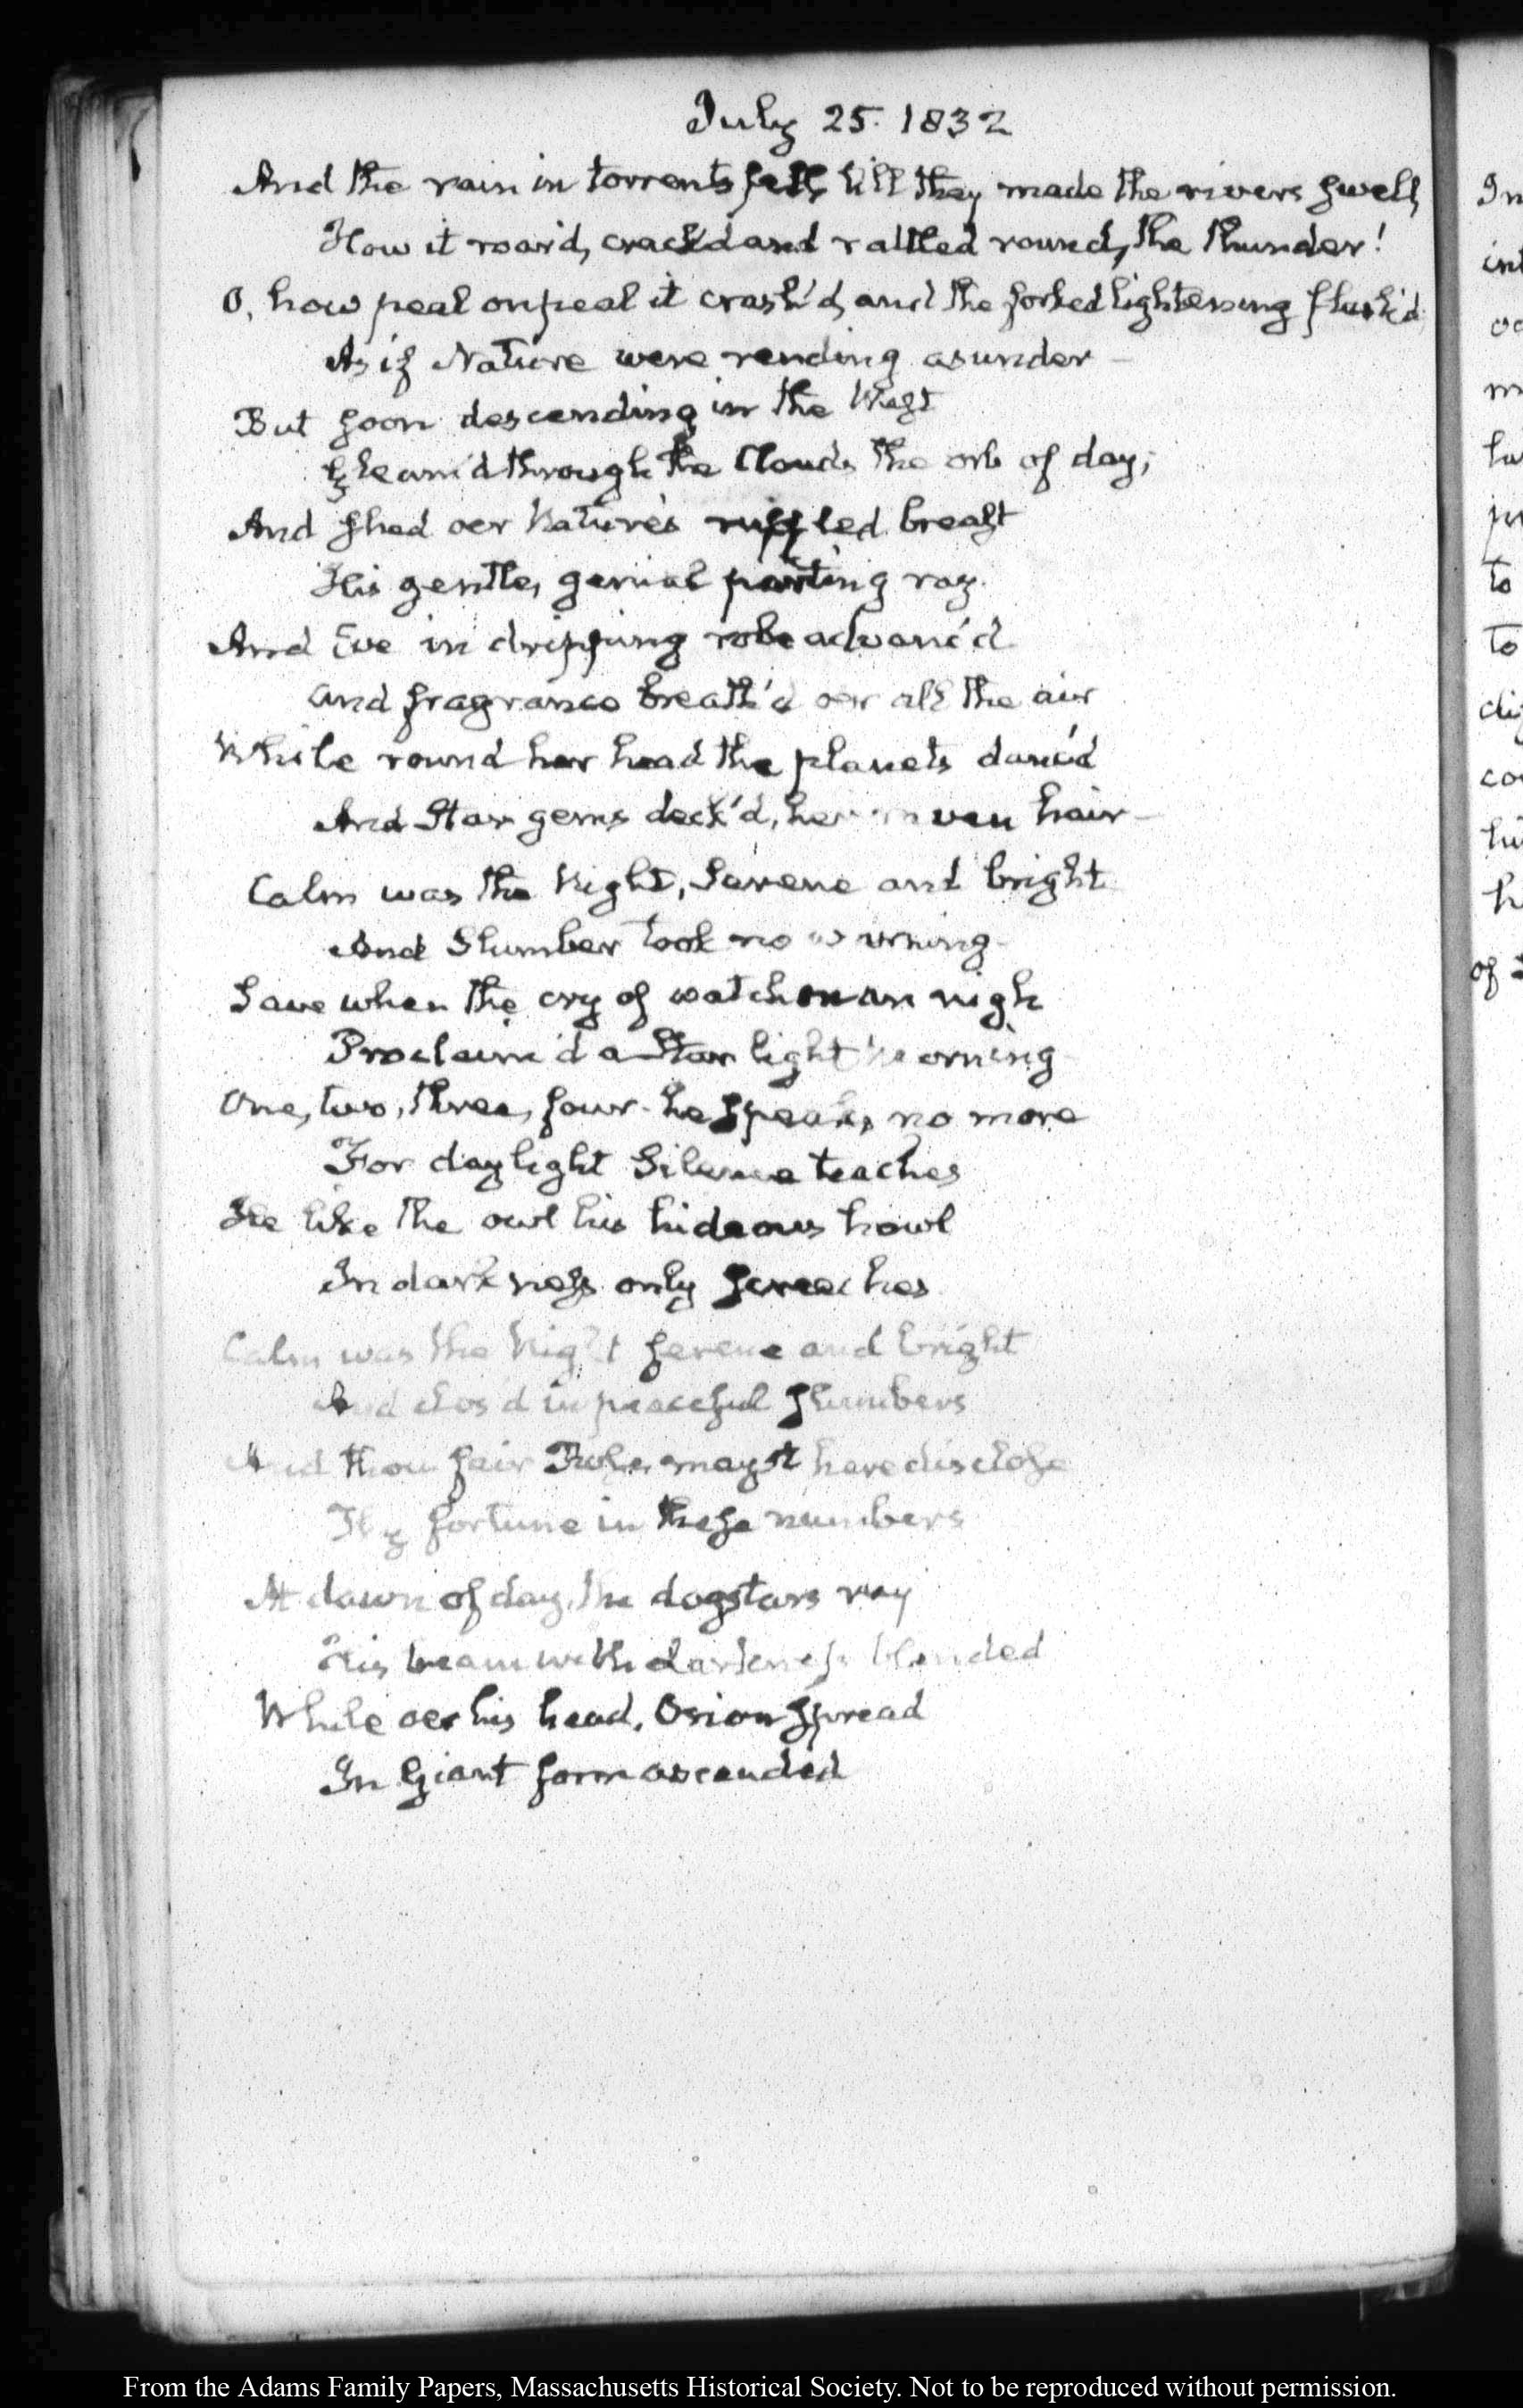 July 25. 1832
And the rain in torrents fell, till they made the rivers swell,
How it roar'd, crack'd and rattled round, the thunder!
O, how peal on peal it crash'd, and the forked lightening flash'd
As if Nature were rending asunder –
But soon descending in the West
Gleam'd through the Clouds the orb of day;
And shed oer Nature's ruffled breast
His gentle, genial parting ray.
And Eve in dripping robe advanc'd
And fragrance breath'd oer all the air
While round her head the planets danc'd
And Star gems deck'd, her raven hair –
Calm was the Night, Serene and bright
And Slumber took no warning –
Save when the cry of watchman nigh
Proclaim'd a Star light morning
One, two, three, four – he speaks, no more
For daylight Silence teaches
He like the owl his hideous howl
In darkness only screeches
Calm was the Night serene and bright
And clos'd in peaceful slumbers
And thou fair may'st have disclose
Thy fortune in these numbers
At dawn of day, the dogstars ray
His beam with darkness blended
While oer his head, Orion spread
In Giant form ascended
In
to
to
of
From the Adams Family Papers, Massachusetts Historical Society. Not to be reproduced without permission.